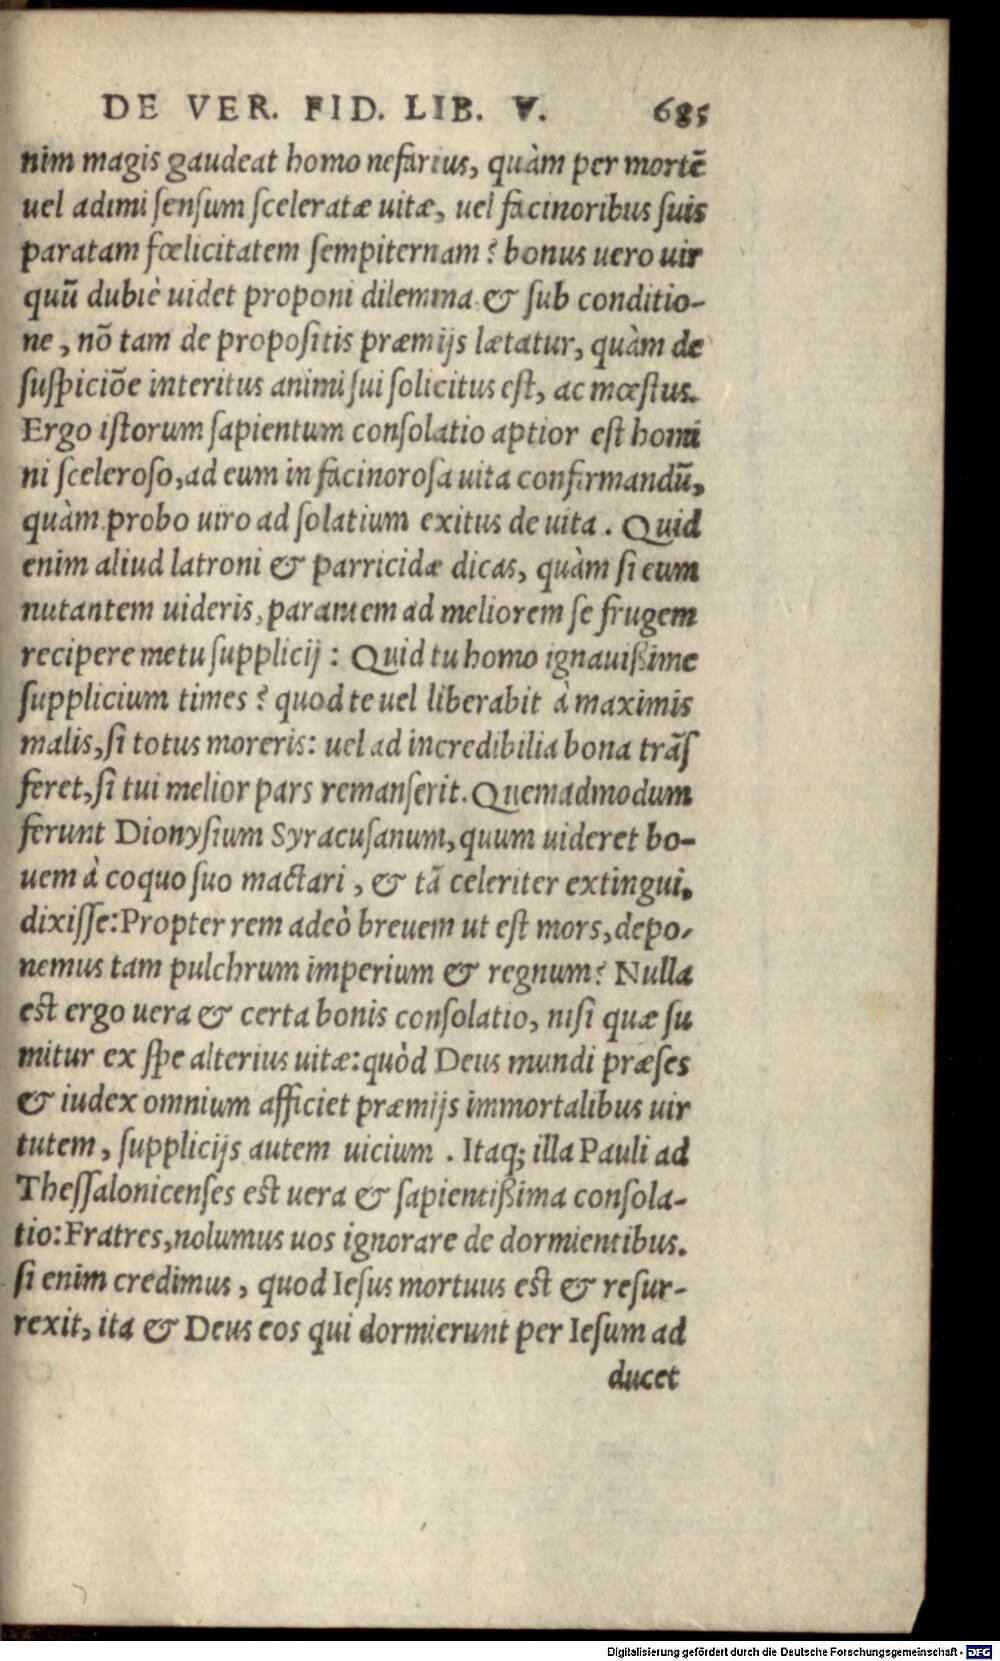 DE VER. FID. LIB. V. 685
nim magis gaudeat homo nefarius, quàm per mortē
uel adimi ſenſum ſceleratæ uitæ, uel facinoribus ſuis
paratam fœlicitatem ſempiternam? bonus uero uir
quū dubiè uidet proponi dilemma & ſub conditio-
ne, nō tam de propoſitis præmijs lætatur, quàm de
ſuſpiciōe interitus animi ſui ſolicitus eſt, ac mœſtus.
Ergo iſtorum ſapientum conſolatio aptior eſt homi
ni ſceleroſo, ad eum in facinoroſa uita confirmandū,
quàm probo uiro ad ſolatium exitus de uita. Quid
enim aliud latroni & parricidæ dicas, quàm ſi eum
nutantem uideris, parantem ad meliorem ſe frugem
recipere metu ſupplicij: Quid tu homo ignauißime
ſupplicium times? quod te uel liberabit à maximis
malis, ſi totus moreris: uel ad incredibilia bona trāſ
feret, ſi tui melior pars remanſerit. Quemadmodum
ferunt Dionyſium Syracuſanum, quum uideret bo-
uem à coquo ſuo mactari, & tā celeriter extingui.
dixiſſe: Propter rem adeò breuem ut eſt mors, depo-
nemus tam pulchrum imperium & regnum? Nulla
eſt ergo uera & certa bonis conſolatio, niſi quæ ſu
mitur ex ſpe alterius uitæ: quòd Deus mundi præſes
& iudex omnium afficiet præmijs immortalibus uir
tutem, ſupplicijs autem uicium. Itaq; illa Pauli ad
Theſſalonicenſes eſt uera & ſapientißima conſola-
tio: Fratres, nolumus uos ignorare de dormientibus.
ſi enim credimus, quod Ieſus mortuus eſt & reſur-
rexit, ita & Deus eos qui dormierunt per Ieſum ad
ducet
Digitalisierung gefördert durch die Deutsche Forschungsgemeinschaft - DFG